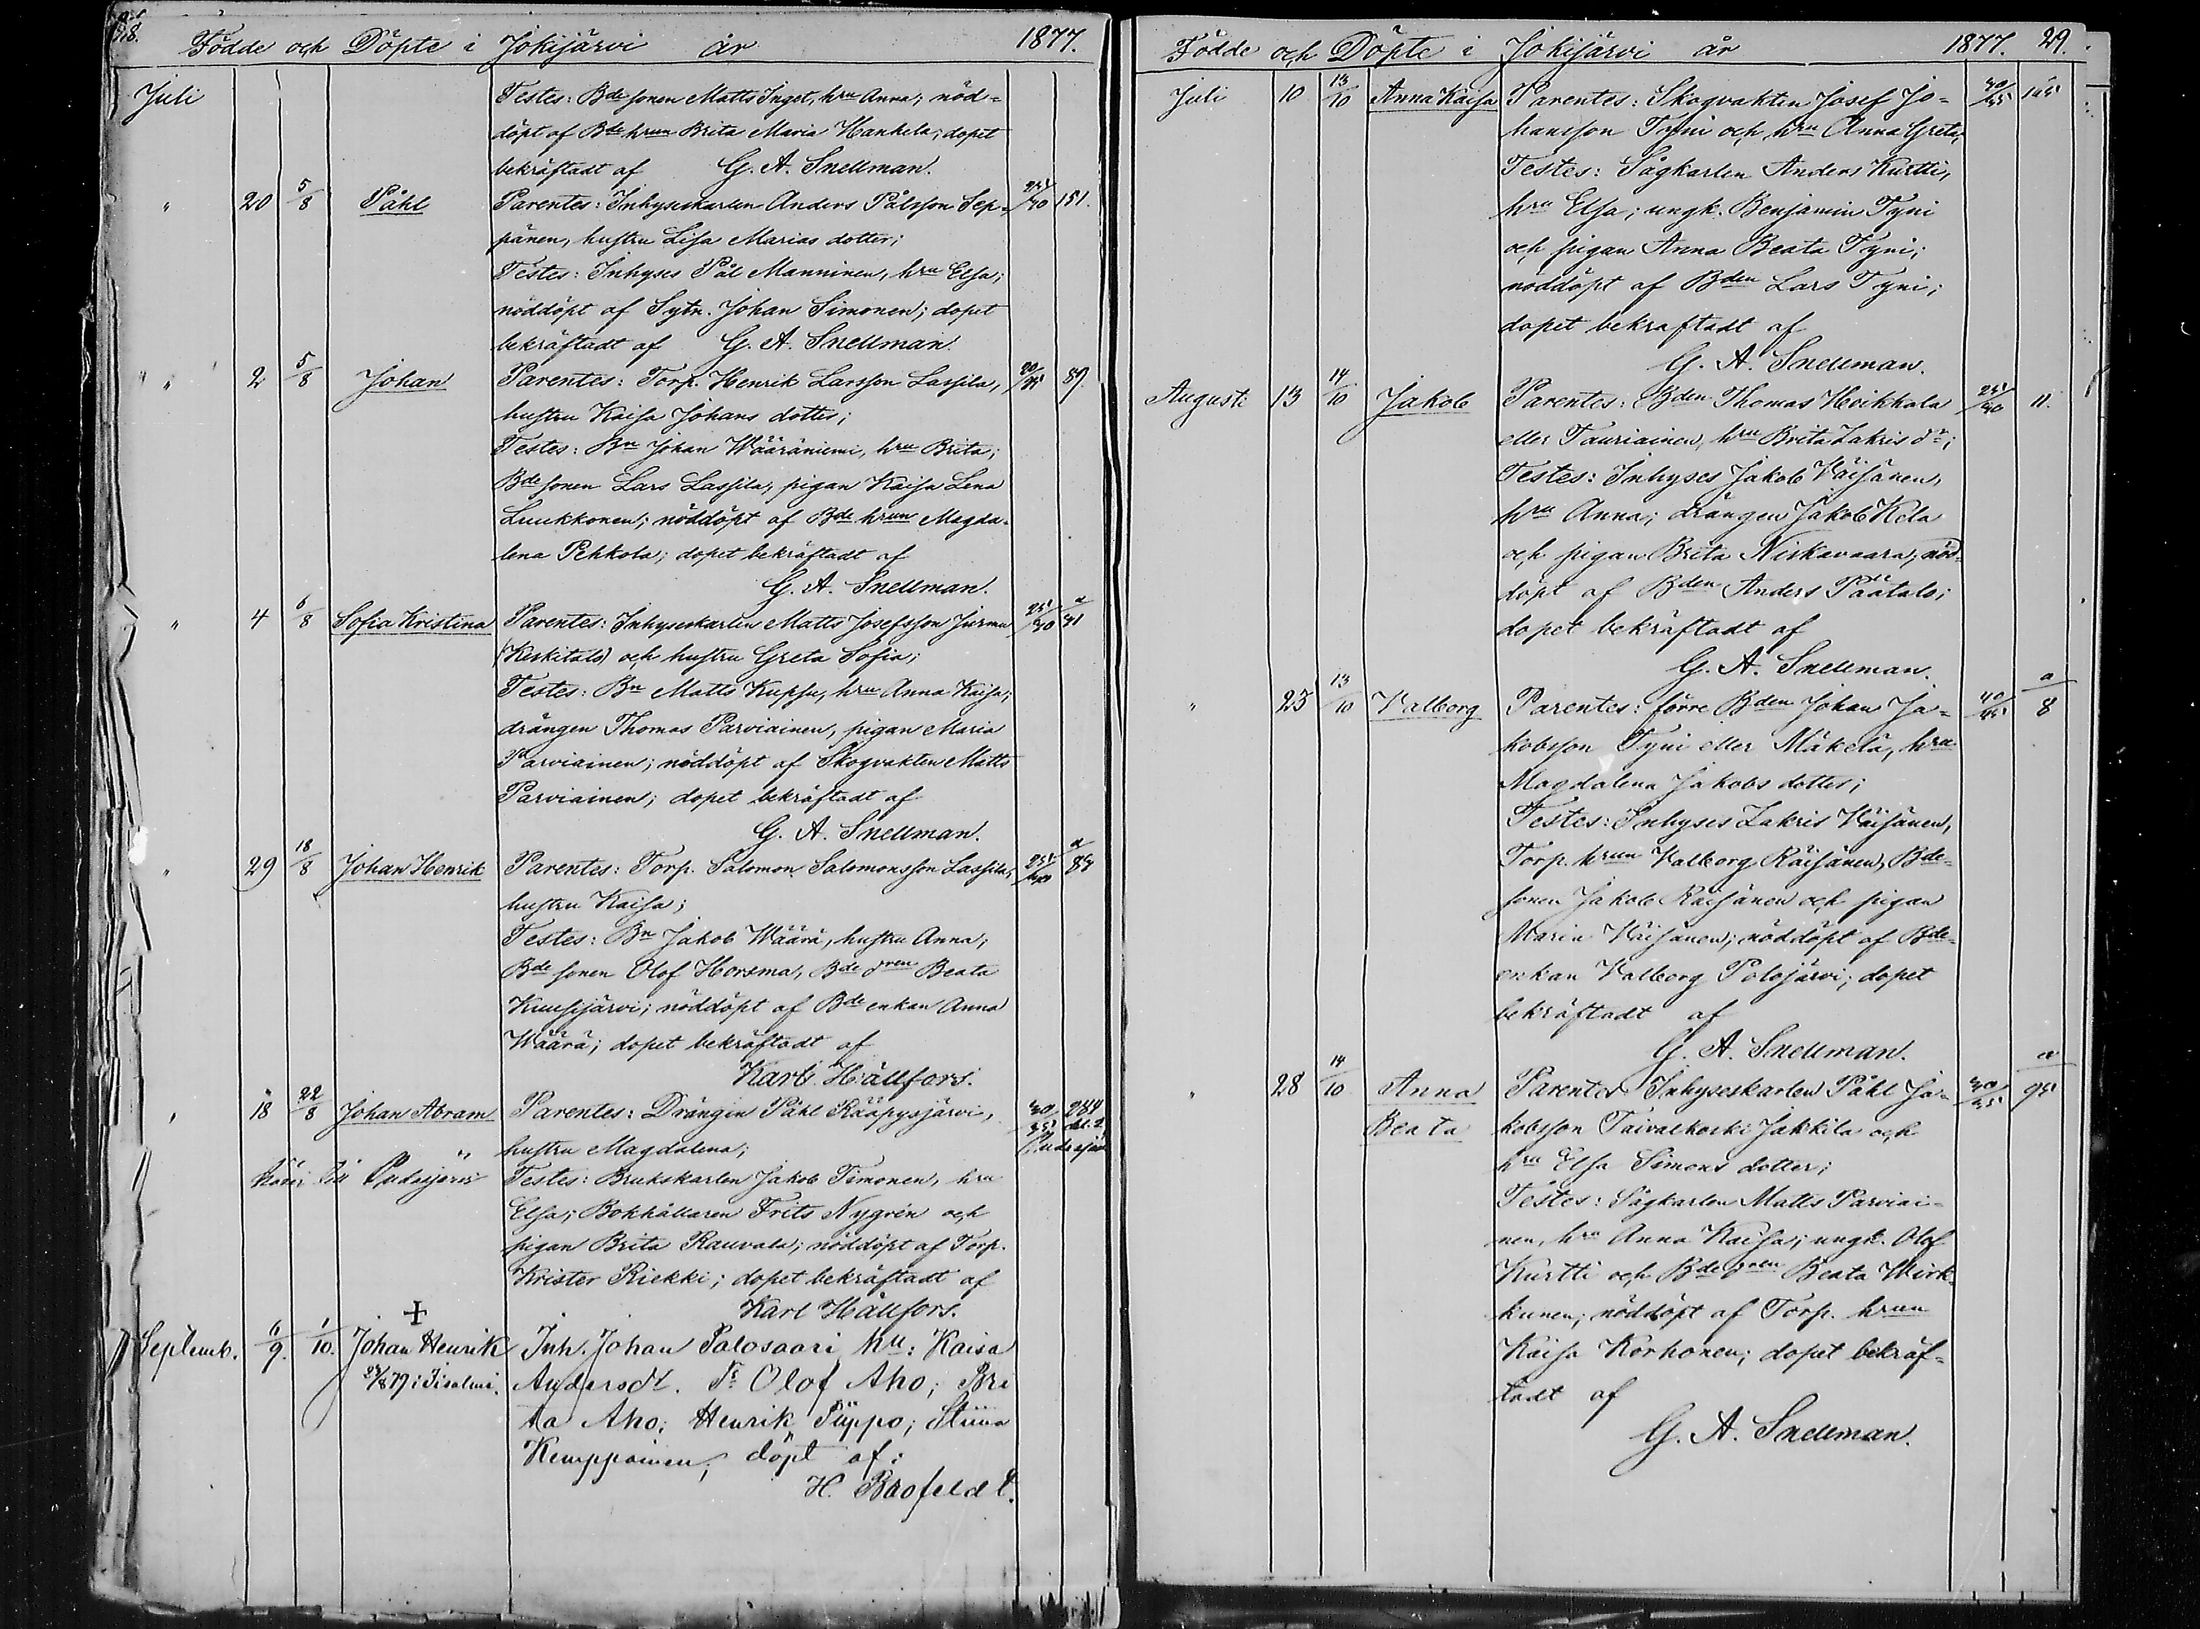 28. Födde och Döpte i Jokijärvi år 1877.
Juli Testes: Bde sonen Matts Inget, hru Anna; nöd-
döpt af Bde hrun Brita Maria Hankela; dopet
bekräftadt af G. A. Snellman.
" 20 5/8 Påhl Parentes: Inhyseskarlen Anders Pålsson Sep- 25/40 151.
pänen, hustru Lisa Marias dotter;
Testes: Inhyses Pål Manninen, hru Elsa;
nöddöpt af Sytn. Johan Simonen; dopet
bekräftadt af G. A. Snellman.
" " 2 5/8 Johan Parentes: Torp. Henrik Larsson Lassila, 30/35 89.
hustru Kaisa Johans dotter;
Testes: Bn Johan Wääräniemi, hru Brita;
Bde sonen Lars Lassila, pigan Kaisa Lena
Luukkonen; nöddöpt af Bde hrun Magda-
lena Pehkola; dopet bekräftadt af
G. A. Snellman.
" 4 6/8 Sofia Kristina Parentes: Inhyseskarlen Matts Josefsson Jurmu 25/30 a/41
(Keskitalo) och hustru Greta Sofia;
Testes: Bn Matts Kupsu, hru Anna Kaisa;
drängen Thomas Parviainen, pigan Maria
Parviainen; nöddöpt af Skogvakten Matts
Parviainen; dopet bekräftadt af
G. A. Snellman.
" 29 18/8 Johan Henrik Parentes: Torp. Salomon Salomonsson Lassila, a/88
hustru Kaisa;
Testes: Bn Jakob Wäärä, hustru Anna;
Bde sonen Olof Horsma, Bde dren Beata
Kuusijärvi; nöddöpt af Bde enkan Anna
Wäärä; dopet bekräftadt af
Karl Hällfors.
" 18 22/8 Johan Abram Parentes: Drängin Påhl Rääpysjärvi, 30/35 284
hustru Magdalena;
till Pudasjärvi Testes: Brukskarlen Jakob Timonen, hru
Elsa; Bokhållaren Frits Nygrén och
pigan Brita Rauvala; nöddöpt af Torp.
Krister Riekki; dopet bekräftadt af
Karl Hällfors.
Septemb. 6/9. 1/10. + Johan Henrik Inh. Johan Palosaari hu: Kaisa
79 i Iisalmi. Andersdt. Ts Olof Aho; Bri
ta Aho; Henrik Piippo; Stiina
Kemppainen; döpt af:
H. Brofeldt.
Födde och Döpte i Jokijärvi år 1877. 29.
Juli 10 13/10 Anna Kaisa Parentes: Skogvakten Josef Jo- 30/35 105
hansson Tyni och hru Anna Greta,
Testes: Sågkarlen Anders Kurtti,
hru Elsa; ungk. Benjamin Tyni
och pigan Anna Beata Tyni;
nöddöpt af Bden Lars Tyni;
dopet bekräftadt af
G. A. Snellman.
Augusti 13 14/10 Jakob Parentes: Bden Thomas Heikkala 25/30 11.
eller Tauriainen, hru Brita Zakris dr;
Testes: Inhyses Jakob Väisänen,
hru Anna; drängen Jakob Kela
och pigan Brita Niskavaara; nöd-
döpt af Bden Anders Päätalo;
dopet bekräftadt af
G. A. Snellman.
" 25 13/10 Valborg Parentes: förre Bden Johan Ja- 40/45 a/8
kobsson Tyni eller Mäkelä, hru
Magdalena Jakobs dotter;
Testes: Inhyses Zakris Väisänen,
Torp. hrun Valborg Räisänen, Bde-
sonen Jakob Räisänen och pigan
Maria Väisänen; nöddöpt af Bde-
enkan Valborg Polojärvi; dopet
bekräftadt af
G. A. Snellman.
" 28 14/10 Anna Parentes Inhyseskarlen Påhl Ja- 30/35 a/95
Beata kobsson Taivalkoski Jakkila och
hru Elsa Simons dotter;
Testes: Sågkarlen Matts Parviai-
nen, hru Anna Kaisa; ungk. Olof
Kurtti och Bde dren Beata Wirk-
kunen; nöddöpt af Torp. hrun
Kaisa Korhonen; dopet bekräf-
tadt af
G. A. Snellman.